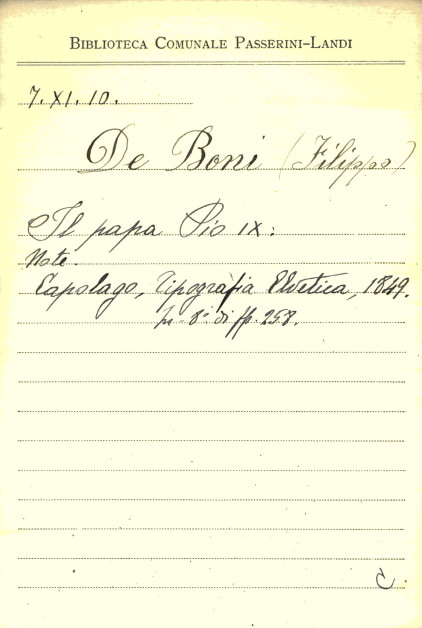 BIBLIOTECA COMUNALE PASSERINI-LANDI
7. XI. 10.
De Boni (Filippo)
Il papa Pio IX:
Note.
Capolago, Tipografia Elvetica, 1849.
In-8° di pp. 258.
C.